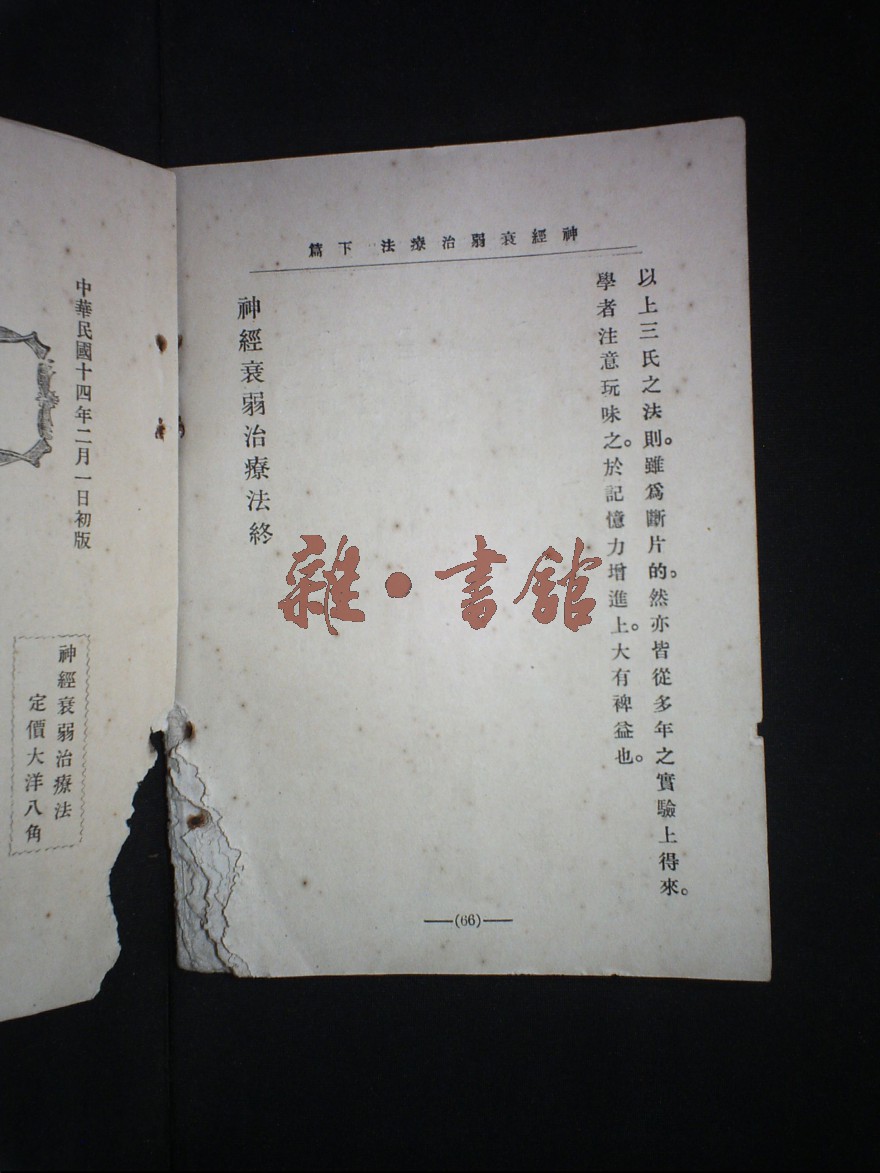 神經衰弱治療法 下篇
以上三氏之法則。雖爲斷片的。然亦皆從多年之實驗上得來。
學者注意玩味之。於記憶力增進上。大有裨益也。
神經衰弱治療法終
(66)
中華民國十四年二月一日初版
神經衰弱治療法
定價大洋八角
雜·書館